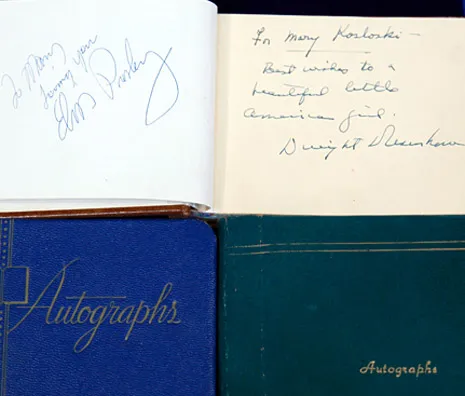 To Mary
Sincerely yours
Elvis Presley
For Mary Kosloski -
Best wishes to a
beautiful little
American girl.
Dwight Eisenhower
Autographs
Autographs